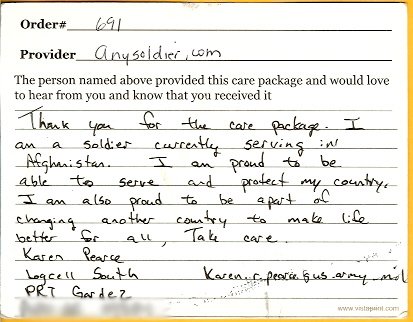 Order# 691
Provider anysoldier.com
The person named above provided this care package and would love
to hear from you and know that you received it
Thank you for the care package. I
am a soldier currently serving in
Afghanistan. I am proud to be
able to serve and protect my country.
I am also proud to be apart of
changing another country to make life
better for all, Take care.
Karen Pearce
Logcell South Karen.r.pearce@us.army.mil
PRT Gardez
www.vistaprint.com